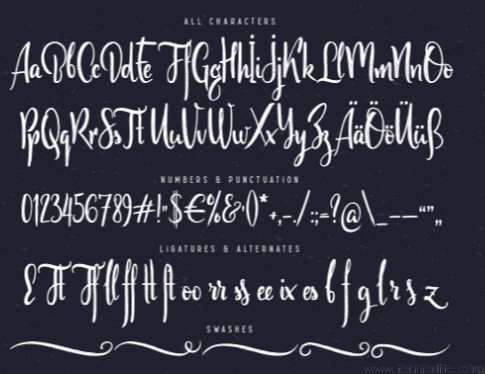 ALL CHARACTERS
AaBbCcDdEe FfGgHhIiJjKkLlMmNnOo
PpQqRrSsTt UuVvWwXxYyZz ÄäÖöÜüß
NUMBERS & PUNCTUATION
0123456789#!"$€%&'()*+,-./:;=?@\_–—“”„
LIGATURES & ALTERNATES
ll ff tt oo rr ss ee ix es b f g l r s z
SWASHES